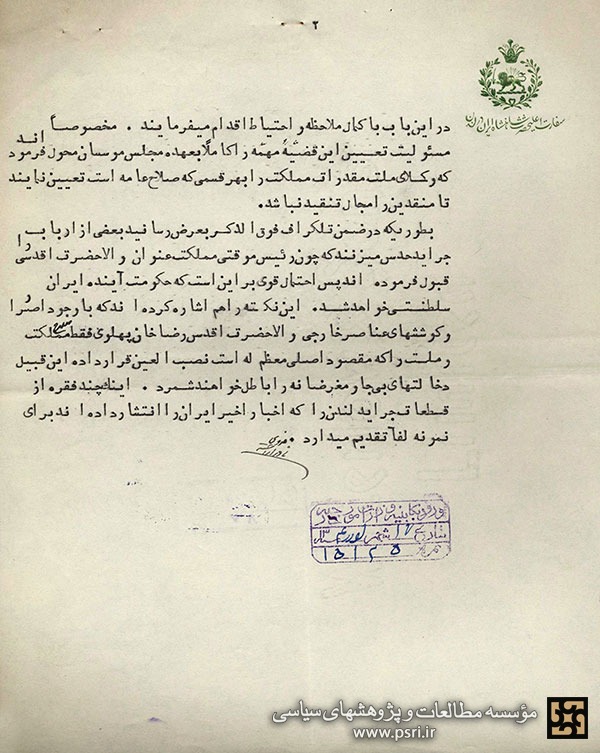 ۲
سفارت اعلیحضرت شاهنشاه ایران لندن
در این باب با کمال ملاحظه و احتیاط اقدام میفرمایند . مخصوصاً
مسئولیت تعیین این قضیهٔ مهمّه را کاملاً بعهده مجلس موسسان محول فرموده اند
که وکلای ملت مقدرات مملکت را بهر قسمی که صلاح عامه است تعیین نمایند
تا منقدین را مجال تنقید نباشد .
بطوریکه در ضمن تلگراف فوق الذکر بعرض رسانید بعضی از ارباب
جراید حدس میزنند که چون رئیس موقتی مملکت عنوان والاحضرت اقدسی را
قبول فرموده اند پس احتمال قوی بر این است که حکومت آیندهٔ ایران
سلطنتی خواهد شد . این نکته را هم اشاره کرده اند که با وجود اصرار
و کوششهای عناصر خارجی والاحضرت اقدس رضا خان پهلوی فقط مملکت
و ملت را که مقصود اصلی معظم له است نصب العین قرار داده این قبیل
دخالتهای بی جا و مغرضانه را باطل خواهند شمرد . اینک چند فقره از
قطعات جراید لندن را که اخبار اخیر ایران را انتشار داده اند برای
نمونه لفاً تقدیم میدارد .
ورود بکابینه وزارت امور خارجه
بتاریخ ۱۷ شهر
نمره ۱۵۱۲۵
مؤسسه مطالعات و پژوهشهای سیاسی
www.psri.ir